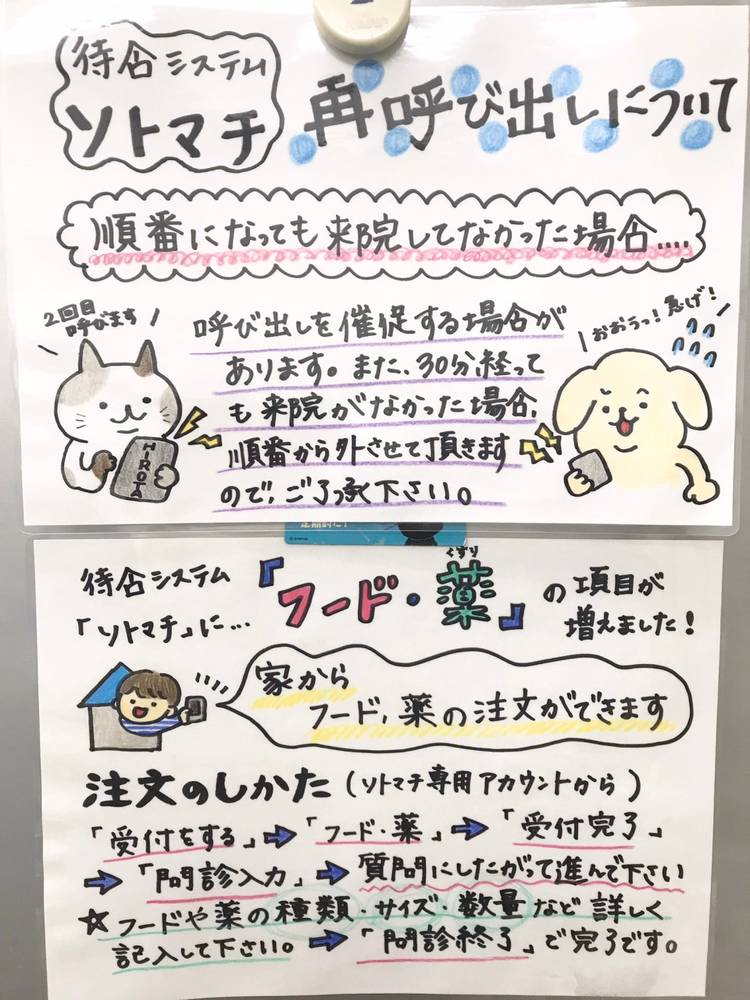 待合システム
ソトマチ
再呼び出しについて
順番になっても来院してなかった場合....
2回目
呼びます
呼び出しを催促する場合が
あります。また、30分経って
も来院がなかった場合、
順番から外させて頂きます
ので、ご了承下さい。
おおうっ!急げ!
HIROTA
待合システム
「ソトマチ」に…
『フード・薬』
くすり
の項目が
増えました!
家から
フード,薬の注文ができます
注文のしかた(ソトマチ専用アカウントから)
「受付をする」→「フード・薬」→「受付完了」
→「問診入力」→質問にしたがって進んで下さい
☆フードや薬の種類・サイズ・数量など詳しく
記入して下さい。→「問診終了」で完了です。